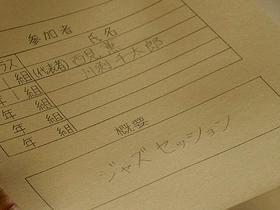 参加者 氏名
ラス
1組 (代表者) 西見 薫
年1組 川渕 千太郎
年 組
年 組
年 組
概要
ジャズセッション